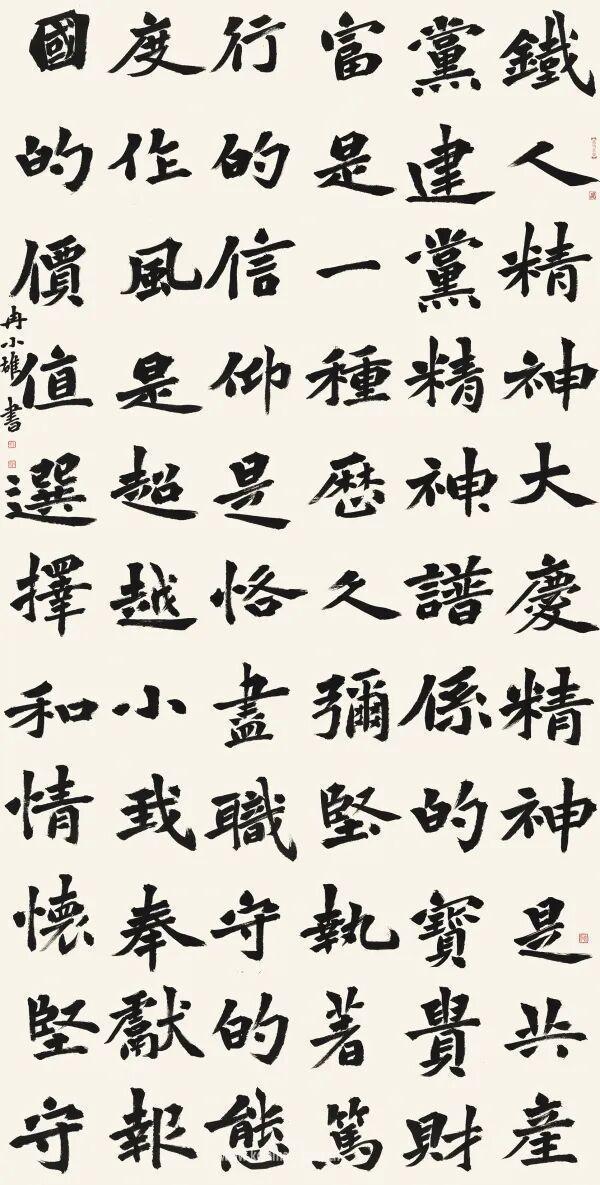 鐵人精神大慶精神是共產
黨建黨精神譜係的寶貴財
富是一種歷久彌堅執著篤
行的信仰是恪盡職守的態
度作風是超越小我奉獻報
國的價值選擇和情懷堅守
冉小雄書